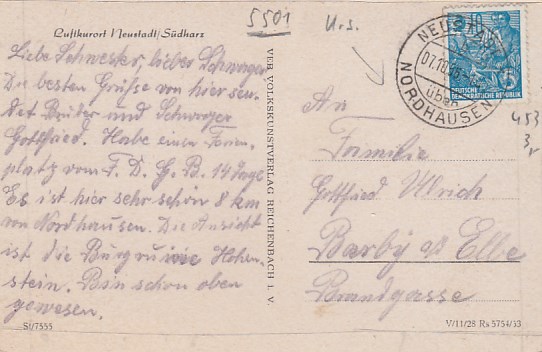 5501
U.S.
Luftkurort Neustadt/Südharz
Liebe Schwester, lieber Schwager
Die besten Grüße von hier sen-
det Bruder und Schwager
Gottfried. Habe einen Ferien-
platz vom F.D.G.B. 14 Tage
Es ist hier sehr schön 8 km
von Nordhausen. Die Ansicht
ist die Burgruine Hohen-
stein. Bin schon oben
gewesen.
St/7555
VEB VOLKSKUNSTVERLAG REICHENBACH I. V.
NEUSTADT
über
NORDHAUSEN
5
DEUTSCHE
DEMOKRATISCHE REPUBLIK
453
An
Familie
Gottfried Ulrich
Barby a/s Elbe
Brandgasse
V/11/28 Rs 5754/53